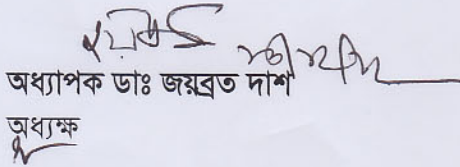 অধ্যাপক ডাঃ জয়ব্রত দাশ
অধ্যক্ষ